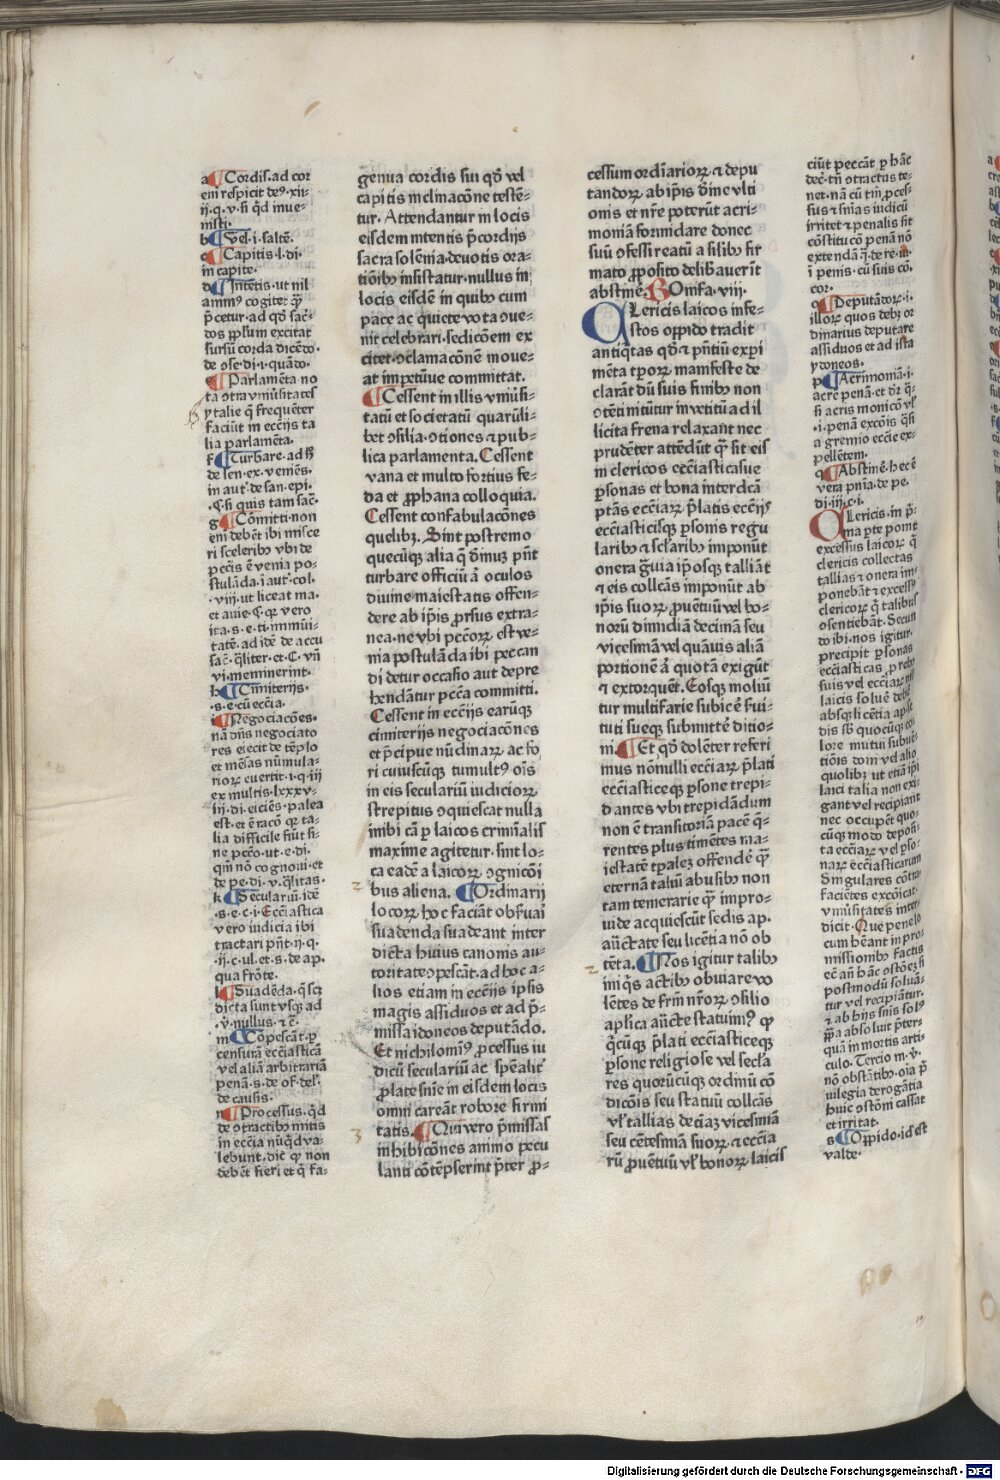 a ¶Cordis. ad cor
em respicit deꝰ. xii
ii. q. v. si q̄d inue-
nisti.
b ¶Vel. i. saltē.
c ¶Capitis. l. di.
in capite.
d ¶Intētis. ut nil
ammꝰ cogitet q̄ꝫ
p̄cetur. ad qd̄ sac̄-
dos p̱pl̄um excitat
sursū corda dicēdo.
de ꝯse. di. i. quādo.
e ¶Parlamēta no
ta ꝯtra vniūsitates
ytalie q̄ frequēter
faciūt in ecc̄ijs ta
lia parlamēta.
f ¶Turbare. ad h̄
de sen. ex. veniēs.
in aut̄. de san. epi.
.C. si quis tam sac̄.
g ¶Cōmitti. non
eni debēt ibi misce
ri sceleribꝰ vbi de
pccīs ē venia po-
stulāda. i aut̄. col.
.viii. ut liceat ma.
et auie. C. qꝛ vero
ira. s. e. ti. immūi-
tatē. ad idē de accu
sac̄. q̄liter. et C. vn̄
vi. meminerint.
h ¶Cimiterijs.
.s. e. cū ecc̄ia.
i ¶Negociacōes.
nā dn̄s negociato
res eiecit de tēplo
et mēsas nūmula-
rioꝝ euertit. i. q. iii
ex multis. lxxxv-
iii. di. eiciēs. palea
est. et ē racō qꝛ ta-
lia difficile fiūt si-
ne pccō. ut. e. di.
qm̄ nō cognoui. et
de pe. di. v. q̄litas.
k ¶Seculariū. idē
.s. e. c. i. Ecc̄iastica
vero iudicia ibi
tractari pn̄t. ii. q.
.ii. c. ul. et. s. de ap.
qua frōte.
l ¶Suadēda. q̄ scꝫ
dicta sunt vsqꝫ ad
.v. nullus. ⁊c̄.
m ¶Cōpescāt. p̱
censurā ecc̄iasticā
vel aliā arbitrariā
penā. s. de of. del.
de causis.
n ¶Processus. q̄d
de ꝯtractibꝰ initis
in ecc̄ia nūq̄d va-
lebunt. dic̄ ꝙ non
debēt fieri et q̄ fa-
genua cordis sui qd̄ vel
capitis inclinacōne testē-
tur. Attendantur in locis
eisdem intentis p̄cordijs
sacra solēnia. deuotis ora-
tiōibꝰ insistatur. nullus in
locis eisdē in quibꝰ cum
pace ac quiete vota ꝯue-
nit celebrari. sedicōem ex
citet. ꝯclamacōnē moue-
at impetūue committat.
¶Cessent in illis vniūsi-
tatū et societatū quarūli-
bet ꝯsilia. ꝯtiones ⁊ pub-
lica parlamenta. Cessent
vana et multo fortius fe-
da et p̱phana colloquia.
Cessent confabulacōnes
quelibꝫ. Sint postremo
quecūqꝫ alia q̄ dīinuꝫ pn̄t
turbare officiū ā oculos
diuine maiestatis offen-
dere ab ip̄is prorsus extra-
nea. ne vbi pccōꝝ est ve-
nia postulāda ibi peccan
di detur occasio aut depre
hendātur pccā committi.
Cessent in ecc̄ijs earūqꝫ
cimiterijs negociacōnes
et p̄cipue nūdinaꝝ ac fo
ri cuiuscūqꝫ tumultꝰ oīs
in eis seculariū iudicioꝝ
strepitus ꝯquiescat nulla
inibi cā p̱ laicos crīminalis
maxime agitetur. sint lo-
ca eadē a laicoꝝ ꝯgnicōi
bus aliena. ¶Ordinarij
locoꝝ hoc faciāt obsuai
suadenda suadeant inter
dicta huius canonis au-
toritate ꝯpescāt. ad hoc a-
lios etiam in ecc̄ijs ipsis
magis assiduos et ad p̄-
missa idoneos deputādo.
Et nichilomiꝰ p̱cessus iu
dicū seculariū ac sp̄ealit̄
p̱late sn̄ie in eisdem locis
omni careāt robore firmi
tatis. ¶Qui vero p̄missas
inhibicōnes animo pecu
lanti cōtēpserint p̄ter p̱-
cessum ordiarioꝝ ⁊ depu
tandoꝝ ab ip̄is dīine vlti
onis et nr̄e poterūt acri-
moniā formidare donec
suū ꝯfessi reatū a silibꝰ fir
mato p̱posito delibauerīt
abstinē. Bonifa. viii.
Clericis laicos infe-
stos oppido tradit
antiq̄tas qd̄ ⁊ pn̄tiū experi
mēta tp̱oꝝ manifeste de
clarāt dū suis finibꝰ non
ꝯtēti nitūtur in vetitū ad il
licita frena relaxant nec
prudēter attēdūt q̄ꝫ sit eis
in clericos ecc̄iasticasue
p̱sonas et bona interdcā
p̄tās ecc̄iaꝝ p̄latis ecc̄ijs
ecc̄iasticisqꝫ p̱sonis regu
laribꝰ ⁊ sclaribꝰ imponūt
onera g̃uia ip̄osqꝫ talliāt
⁊ eis collcās imponūt ab
ip̄is suoꝝ p̱uētuū vel bo-
noꝝ dimidiā decimā seu
vicesimā vel quāuis aliā
portionē ā quotā exigūt
⁊ extorquēt. Eosqꝫ moliū
tur multifarie subicē sui-
tuti sueqꝫ submittē ditio-
ni. ¶Et qd̄ dolēter referi
mus nōnulli ecc̄iaꝝ p̄lati
ecc̄iasticeqꝫ p̱sone trepi-
dantes vbi trepidādum
non ē transitoriā pacē q̄-
rentes plus timētes ma-
iestatē tp̱aleꝫ offendē q̄ꝫ
eternā taliū abusibꝰ non
tam temerarie q̄ꝫ impro-
uide acquiescūt sedis ap.
auctate seu licētia nō ob
tēta. ¶Nos igitur talibꝰ
iniqīs actibꝰ obuiare vo
lētes de fr̄m nr̄oꝝ ꝯsilio
aplica aucte statuimꝰ ꝙ
qͥcūqꝫ p̄lati ecc̄iasticeqꝫ
p̱sone religiose vel secla
res quorūcūqꝫ ordinū cō
dicōis seu statuū collcās
vl̄ tallias decimā vicesimā
seu cētesimā suoꝝ ⁊ ecc̄ia
rū p̱uētuū vl̄ bonoꝝ laicis
ciūt peccāt p̱ hāc
dec̄. tn̄ ꝯtractus te-
net. nā cū tm̄ p̱ces-
sus ⁊ sn̄ias iudicū
irritet ⁊ penalis sit
cōstitucō penā nō
extendā. q̄. de re. in
i penis. cū suis cō.
cor.
o ¶Deputādoꝝ. i.
illoꝝ quos debꝫ or
dinarius deputare
assiduos et ad ista
ydoneos.
p ¶Acrimoniā. i.
acrē penā. et dr̄ q̄-
si acris monicō vl̄
.i. penā excōis q̄si
a gremio ecc̄ie ex-
pellētem.
q ¶Abstinē. hec ē
vera pn̄ia. de pe.
di. iii. c. i.
Clericis. in p̄-
ma p̱te ponit
excessus laicoꝝ q̄
clericis collectas
tallias ⁊ onera im-
ponebāt ⁊ excessꝰ
clericoꝝ q̄ talibus
ꝯsentiebāt. Secun
do ibi. nos igitur.
precipit p̱sonas
ecc̄iasticas p̱ rebꝰ
suis vel ecc̄iaꝝ nil
laicis soluē debē
absqꝫ licētia ap. se
dis sb̄ quocūqꝫ co
lore mutui subuē
tiōis doni vel alio
quolibꝫ ut etiā ip̄i
laici talia non exi-
gant vel recipiant
nec occupēt quo-
cūqꝫ modo deposi-
ta ecc̄iaꝝ vel p̱so-
naꝝ ecc̄iasticarum
Singulares cōtra
faciētes excōicat.
vniūsitates inter
dicit. Que pene lo
cum hēant in pro-
missionibꝰ factis
ec̄ an̄ hāc ꝯstōeꝫ si
postmodū soluā-
tur vel recipiātur.
⁊ ab hijs sn̄is solꝰ
p̄pa absoluit p̄ter
quā in mortis arti-
culo. Tercio m. ꝟ.
nō obstātibꝰ. oīa p̄
uilegia derogātia
huic ꝯstōni cassat
et irritat.
s ¶Oppido. id est
valde.
Digitalisierung gefördert durch die Deutsche Forschungsgemeinschaft - DFG